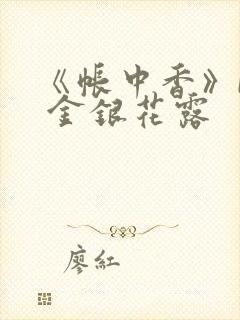 《帳中香》
金銀花露
廖紅